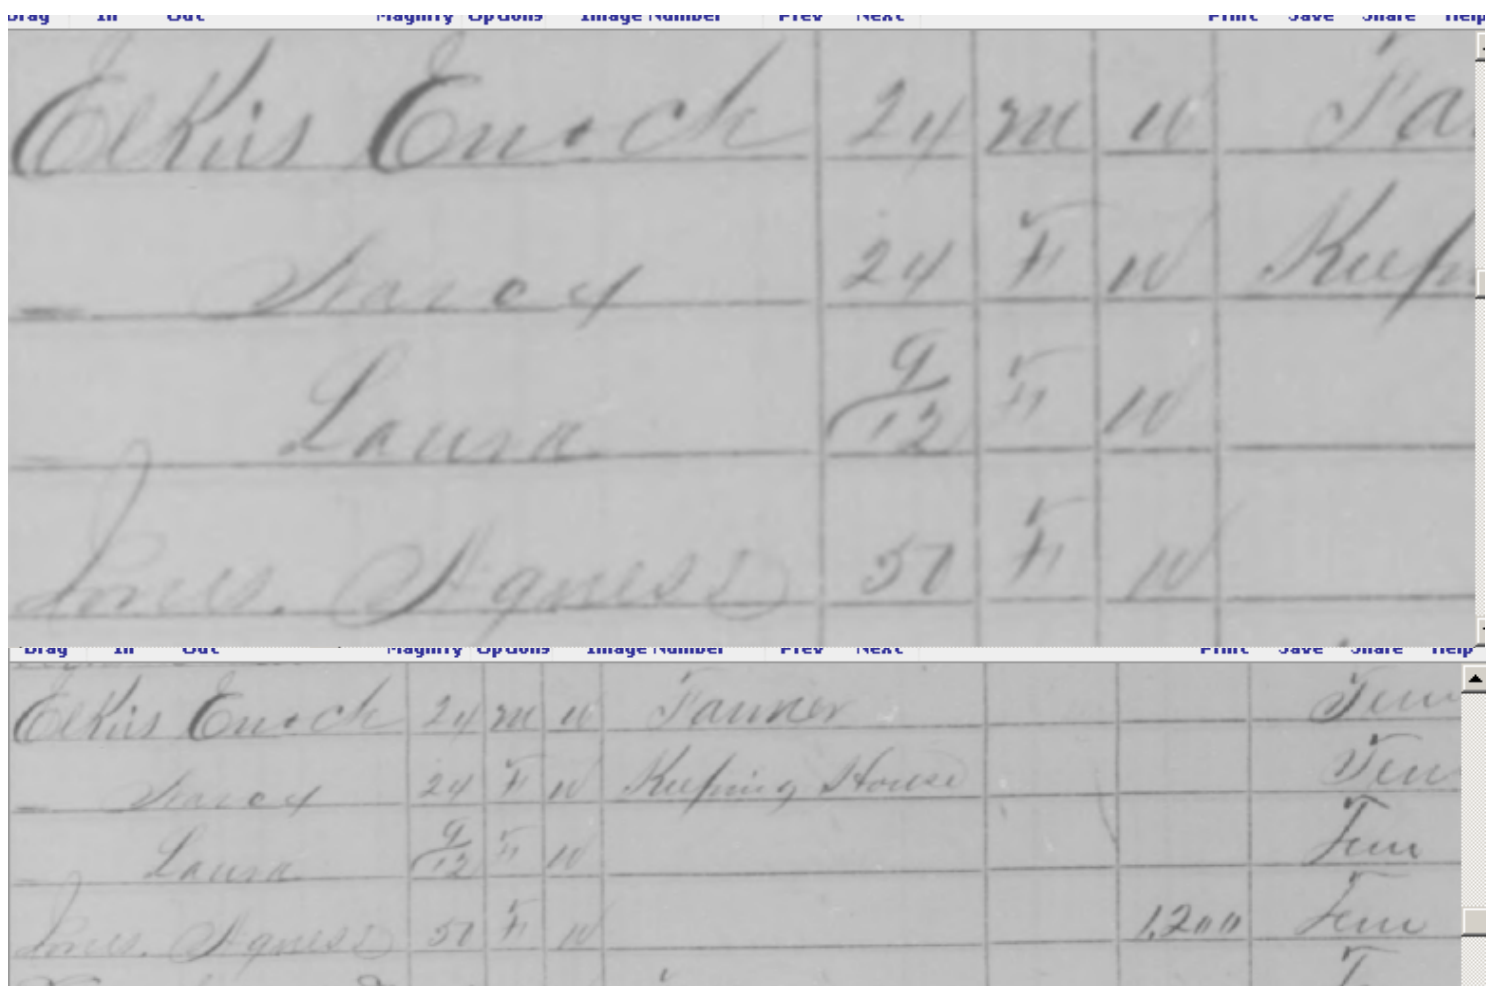 Drag In Out Magnify Options Image Number Prev Next Print Save Share Help
Elkis Enoch 24 m W Fa
— Nancy 24 F W Keep
Laura 9/12 F W
Jones. Agness 51 F W
Drag In Out Magnify Options Image Number Prev Next Print Save Share Help
Elkis Enoch 24 m W Farmer Tenn
— Nancy 24 F W Keeping House Tenn
Laura 9/12 F W Tenn
Jones. Agness 51 F W 1,200 Tenn